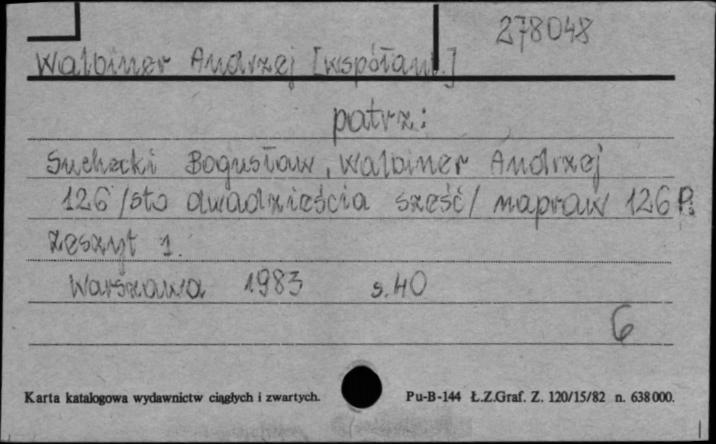 278048
Walbiner Andrzej [współaut.]
patrz:
Suchecki Bogusław, Walbiner Andrzej
126 /sto dwadzieścia sześć/ napraw 126 P.
zeszyt 1.
Warszawa 1983 s. 40
6
Karta katalogowa wydawnictw ciągłych i zwartych.
Pu-B-144 Ł.Z.Graf. Z. 120/15/82 n. 638000.